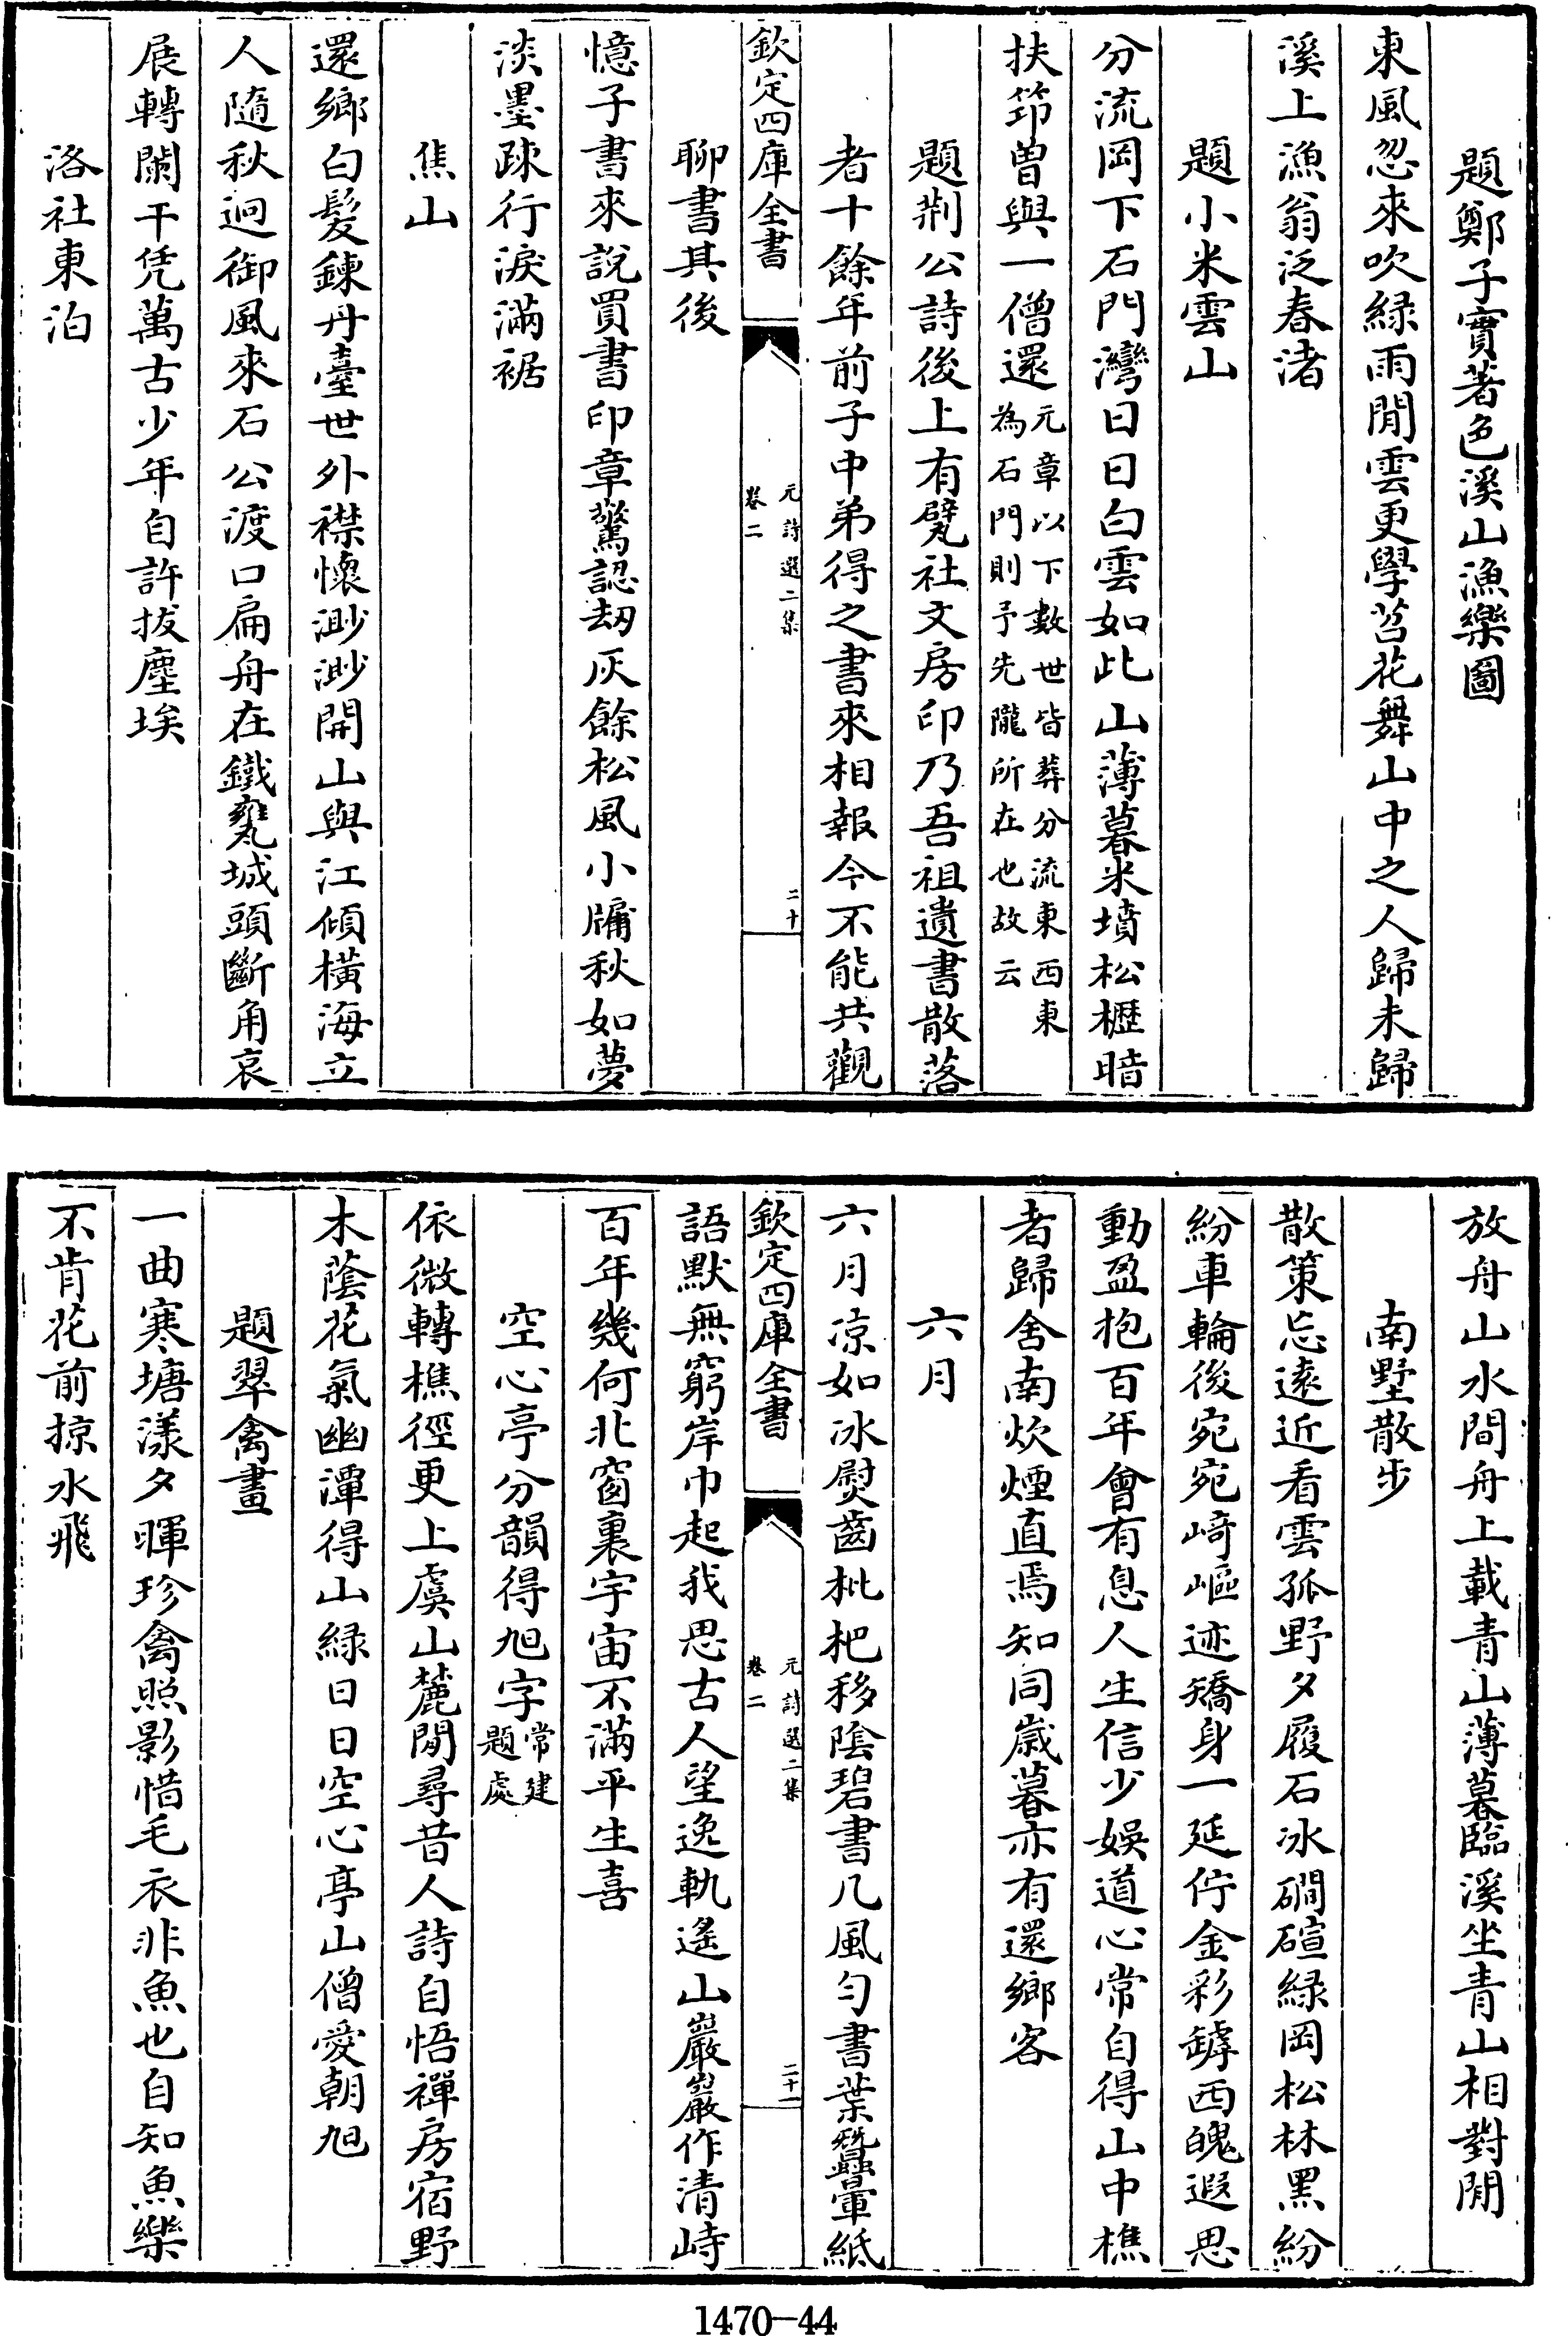 題鄭子實著色溪山漁樂圖
東風忽來吹綠雨閒雲更學苕花舞山中之人歸未歸
溪上漁翁泛春渚
題小米雲山
分流岡下石門灣日日白雲如此山薄暮米墳松櫪暗
扶筇曾與一僧還元章以下數世皆葬分流東西東
為石門則予先隴所在也故云
題荆公詩後上有甓社文房印乃吾祖遺書散落
者十餘年前子中弟得之書來相報今不能共觀
欽定四庫全書
元詩選二集
卷二
二十
聊書其後
憶子書來說買書印章驚認刼灰餘松風小牖秋如夢
淡墨疎行淚滿裾
焦山
還鄉白髮鍊丹臺世外襟懷渺渺開山與江傾橫海立
人隨秋迥御風來石公渡口扁舟在鐵甕城頭斷角哀
展轉闌干凭萬古少年自許拔塵埃
洛社東泊
放舟山水間舟上載青山薄暮臨溪坐青山相對閒
南墅散步
散策忘遠近看雲孤野夕履石冰磵碹綠岡松林黑紛
紛車輪後宛宛崎嶇迹矯身一延佇金彩罅西魄遐思
動盈抱百年會有息人生信少娛道心常自得山中樵
者歸舍南炊煙直焉知同歲暮亦有還鄉客
六月
六月凉如冰熨齒枇杷移陰碧書几風勻書葉蠶暈紙
欽定四庫全書
元詩選二集
卷二
二十一
語默無窮岸巾起我思古人望逸軌遙山巖巖作清峙
百年幾何北窗裏宇宙不滿平生喜
空心亭分韻得旭字常建
題處
依微轉樵徑更上虞山麓閒尋昔人詩自悟禪房宿野
木蔭花氣幽潭得山綠日日空心亭山僧愛朝旭
題翠禽畫
一曲寒塘漾夕暉珍禽照影惜毛衣非魚也自知魚樂
不肯花前掠水飛
1470-44